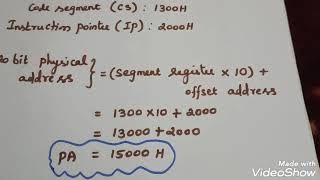 Code segment (CS) : 1300H
Instruction pointer (IP) : 2000H
0 bit physical address } = (segment register × 10) + offset address
= 1300 ×10 + 2000
= 13000 + 2000
PA = 15000 H
Made with
VideoShow